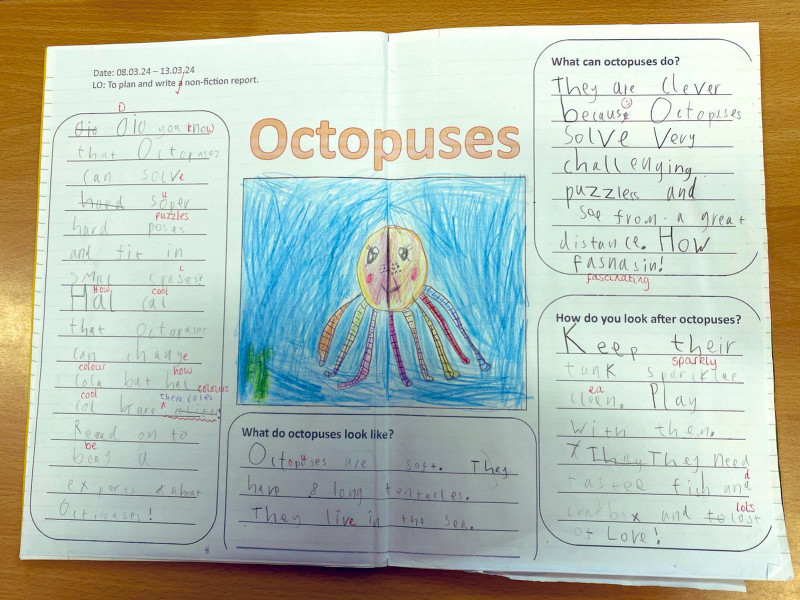 Date: 08.03.24 – 13.03.24
LO: To plan and write a non-fiction report.
D
Dio Dio you know
that Octopuses
can solve
hard soper
u
puzzles
hard poses
and fit in
c
How cool
Hal cal
that Octopuses
can change
colour how
cola but hal colours
cool there coler
col
Read on to
be
beng a
experts about
Octopuses!
Octopuses
What do octopuses look like?
Octopuses are soft. They
have 8 long tentucles.
They live in the sea.
What can octopuses do?
They are clever
because Octopuses
Solve Very
challenging
puzzless and
sae from a great
distance. How
fasnasin!
fascinating
How do you look after octopuses?
Keep their
sparkly
tank
ea
cleen. Play
with them.
They They need
d
tastee fish and
lots
crabs and to lost
of Love!